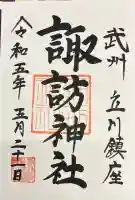 武州 立川鎮座
諏訪神社
令和五年 五月二十一日